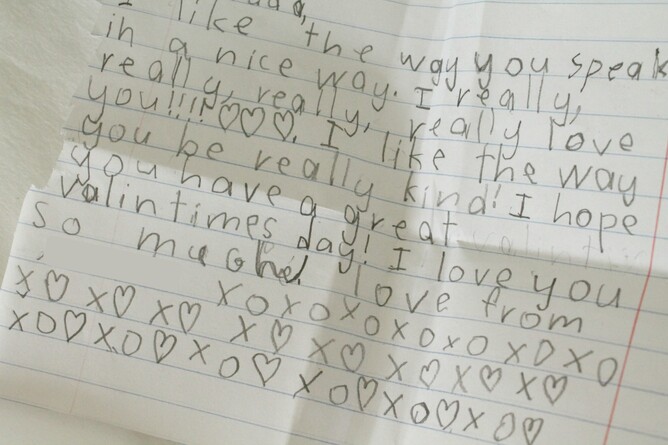 I like the way you speak
in a nice way. I really,
really, really, really love
you!!!!♡♡♡. I like the way
you be really kind! I hope
you have a great
valintimes day! I love you
so muche! love from
XOXOXOXOXOXOXO
X♡ X♡ X♡ X♡ X♡ X♡ X♡ X♡
XO♡XO♡XO♡XO♡XO♡XO♡